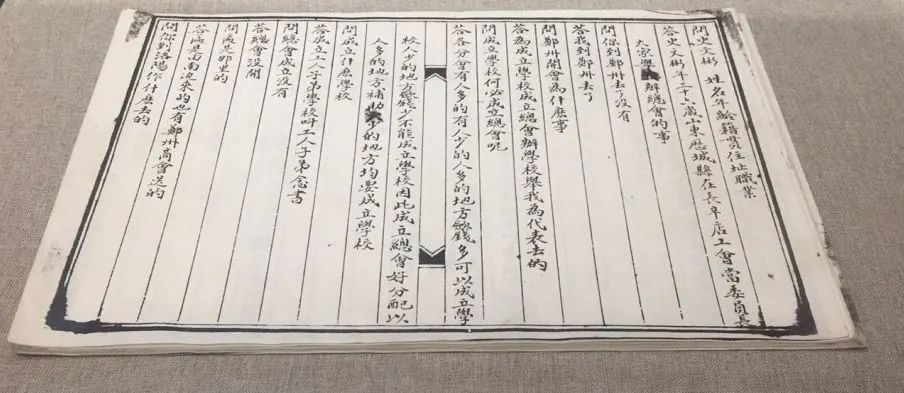 問史文彬 姓名年齡籍貫住址職業
答史文彬年三十六歲山東歷城縣在長辛店工會當委員長
大家舉辦總會的事
問你到鄭州去了沒有
答我到鄭州去了
問鄭州開會為什麽事
答為成立學校成立總會辦學校舉我為代表去的
問成立學校何必成立總會呢
答各分會有人多的有人少的人多的地方餘錢多可以成立學
校人少的地方餘錢少不能成立學校因此成立總會好分配以
人多的地方補助少的地方均要成立學校
問成立什麽學校
答成立工人子弟學校叫工人子弟念書
問總會成立沒有
答總會沒開
問 是那里的
答 是由南邊來的也有鄭州商會送的
問你到洛陽作什麽去的